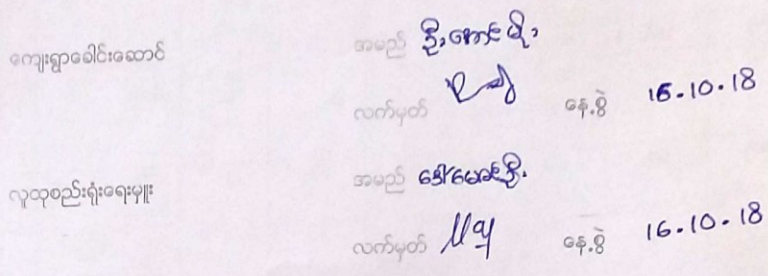 ကျေးရွာခေါင်းဆောင် အမည် ဦးအောင်မိုး
လက်မှတ် နေ့စွဲ 16.10.18
လူထုစည်းရုံးရေးမှူး အမည် ဒေါ်မေဇင်ဦး
လက်မှတ် နေ့စွဲ 16.10.18